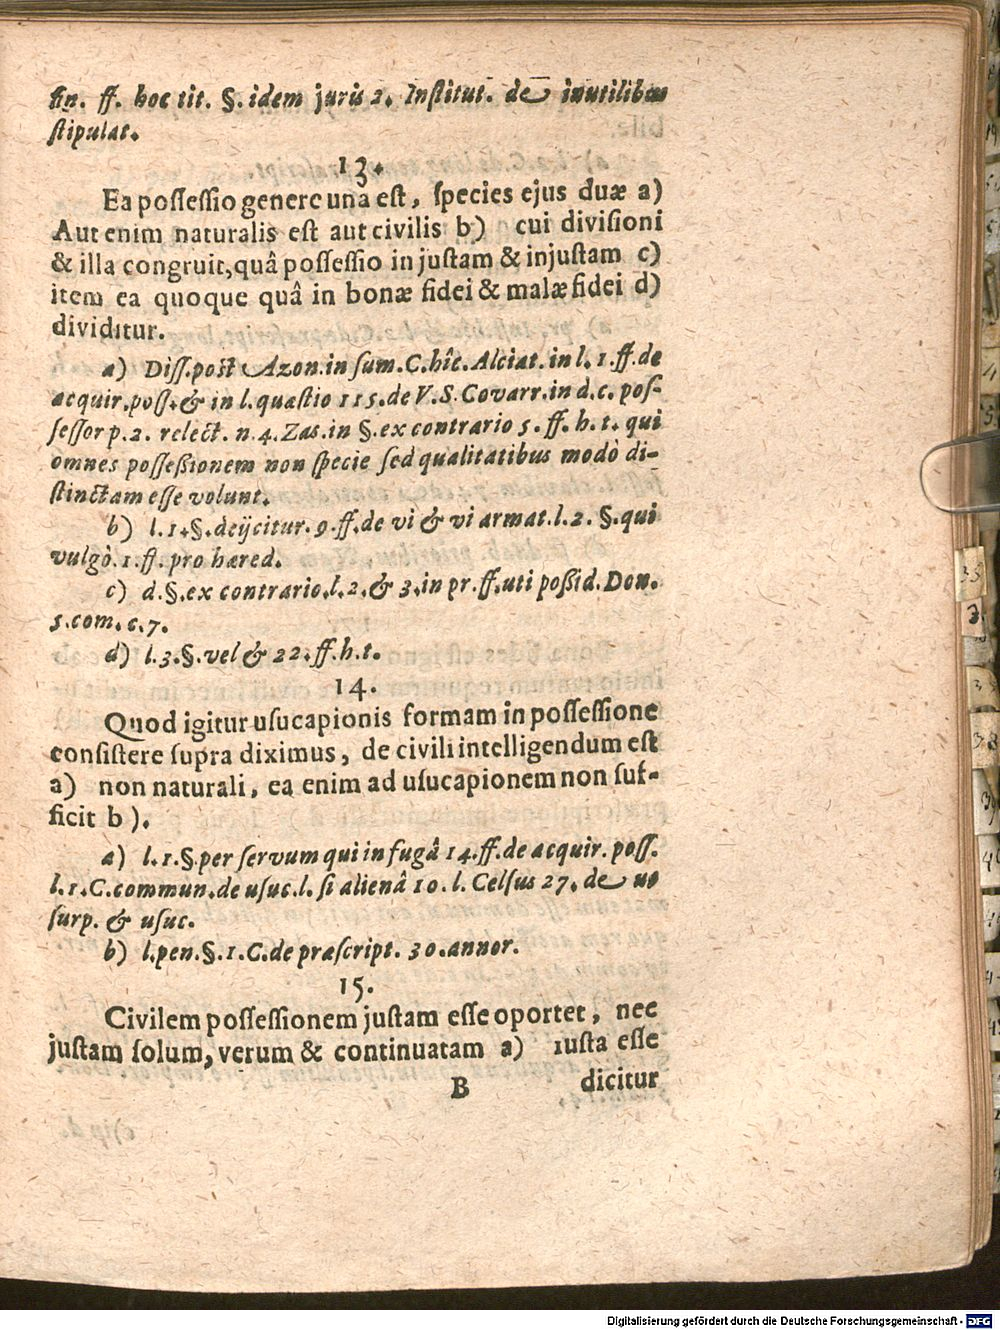 fin. ff. hoc tit. §. idem juris 2. Institut. de inutilibus
stipulat.
13.
Ea possessio genere una est, species ejus duæ a)
Aut enim naturalis est aut civilis b) cui divisioni
& illa congruit, quâ possessio in justam & injustam c)
item ea quoque quâ in bonæ fidei & malæ fidei d)
dividitur.
a) Diss. post Azon. in sum. C. hîc. Alciat. in l. 1. ff. de
acquir. poss. & in l. quæstio 115. de V. S. Covarr. in d. c. pos-
sessor p. 2. relect. n. 4. Zas. in §. ex contrario 5. ff. h. t. qui
omnes possessionem non specie sed qualitatibus modò di-
stinctam esse volunt.
b) l. 1. §. deijcitur. 9. ff. de vi & vi armat. l. 2. §. qui
vulgò. 1. ff. pro hæred.
c) d. §. ex contrario. l. 2. & 3. in pr. ff. uti possid. Don.
5. com. c. 7.
d) l. 3. §. vel & 22. ff. h. t.
14.
Quod igitur usucapionis formam in possessione
consistere supra diximus, de civili intelligendum est
a) non naturali, ea enim ad usucapionem non suf-
ficit b).
a) l. 1. §. per servum qui in fugâ 14. ff. de acquir. poss.
l. 1. C. commun. de usuc. l. si alienâ 10. l. Celsus 27. de u-
surp. & usuc.
b) l. pen. §. 1. C. de præscript. 30. annor.
15.
Civilem possessionem justam esse oportet, nec
justam solum, verum & continuatam a) iusta esse
B dicitur
Digitalisierung gefördert durch die Deutsche Forschungsgemeinschaft - DFG